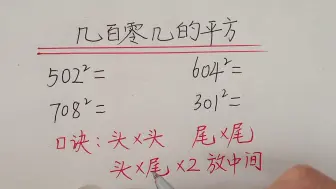 几百零几的平方
502²= 604²=
708²= 301²=
口诀：头×头 尾×尾
头×尾×2 放中间